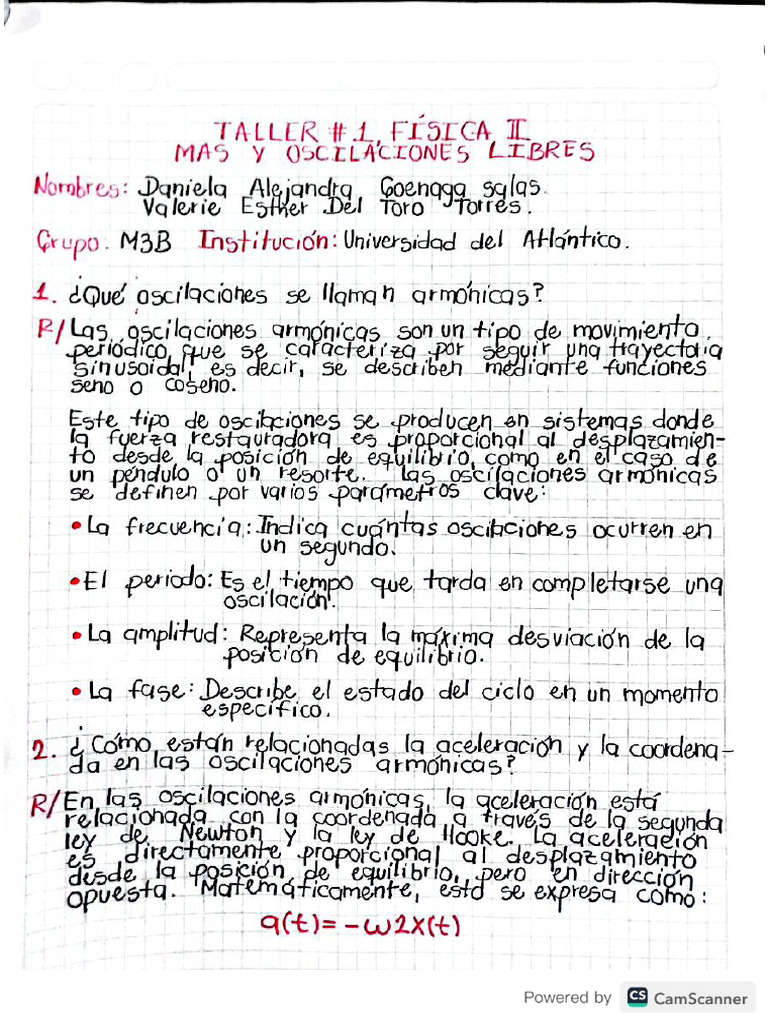 TALLER #1, FÍSICA II
MAS Y OSCILACIONES LIBRES
Nombres: Daniela Alejandra Goenaga salas.
Valerie Esther Del Toro Torres.
Grupo: M3B Institución: Universidad del Atlántico.
1. ¿Qué oscilaciones se llaman armónicas?
R/ Las oscilaciones armónicas son un tipo de movimiento
periódico que se caracteriza por seguir una trayectoria
sinusoidal, es decir, se describen mediante funciones
seno o coseno.
Este tipo de oscilaciones se producen en sistemas donde
la fuerza restauradora es proporcional al desplazamien-
to desde la posición de equilibrio, como en el caso de
un péndulo o un resorte. Las oscilaciones armónicas
se definen por varios parámetros clave:
• La frecuencia: Indica cuántas oscilaciones ocurren en
un segundo.
• El periodo: Es el tiempo que tarda en completarse una
oscilación.
• La amplitud: Representa la máxima desviación de la
posición de equilibrio.
• La fase: Describe el estado del ciclo en un momento
específico.
2. ¿Cómo están relacionadas la aceleración y la coordena-
da en las oscilaciones armónicas?
R/ En las oscilaciones armónicas, la aceleración está
relacionada con la coordenada a través de la segunda
ley de Newton y la ley de Hooke. La aceleración
es directamente proporcional al desplazamiento
desde la posición de equilibrio, pero en dirección
opuesta. Matemáticamente, esto se expresa como:
a(t) = -ω2x(t)
Powered by CS CamScanner